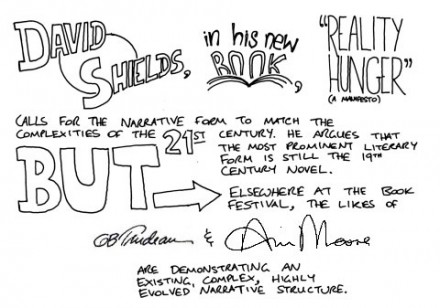 DAVID SHIELDS,
in his new BOOK,
"REALITY HUNGER"
(A MANIFESTO)
CALLS FOR THE NARRATIVE FORM TO MATCH THE
COMPLEXITIES OF THE 21ST CENTURY. HE ARGUES THAT
THE MOST PROMINENT LITERARY
FORM IS STILL THE 19TH
CENTURY NOVEL.
BUT
ELSEWHERE AT THE BOOK
FESTIVAL, THE LIKES OF
GB Trudeau & Moore
ARE DEMONSTRATING AN
EXISTING, COMPLEX, HIGHLY
EVOLVED NARRATIVE STRUCTURE.